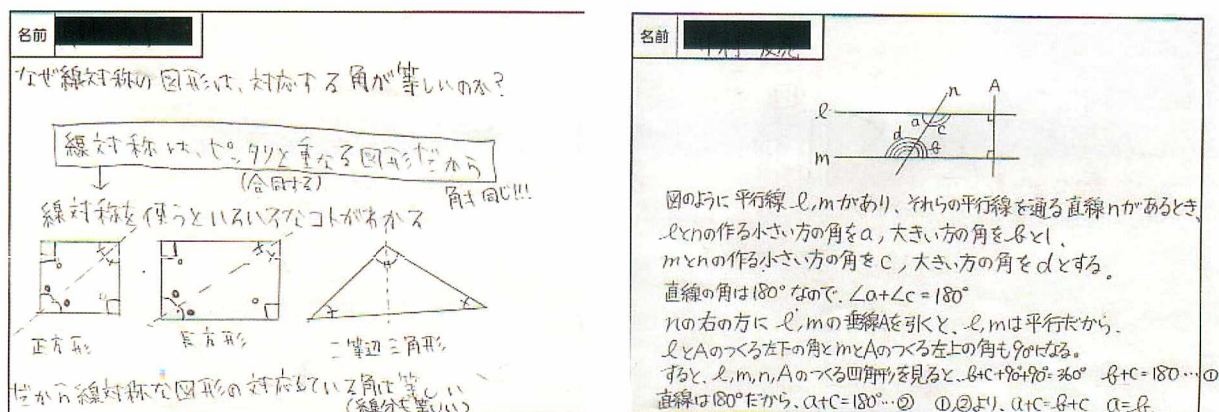 名前
なぜ線対称の図形は、対応する角が等しいのか?
線対称は、ピッタリと重なる図形だから
(合同する)
角も同じ!!!
線対称を使うといろいろなコトがわかる
正方形
長方形
二等辺三角形
だから線対称な図形の対応している角は等しい
(線分も等しい)
名前
n
A
l
a
c
d
b
m
図のように平行線l,mがあり、それらの平行線を通る直線nがあるとき、
lとnの作る小さい方の角をa,大きい方の角をbとし、
mとnの作る小さい方の角をc,大きい方の角をdとする。
直線の角は180°なので、∠a+∠c=180°
nの右の方にl,mの垂線Aを引くと、l,mは平行だから、
lとAのつくる左下の角とmとAのつくる左上の角も90°になる。
すると、l,m,n,Aのつくる四角形を見ると、b+c+90°+90°=360° b+c=180…①
直線は180°だから、a+c=180°…② ①,②より、a+c=b+c a=b